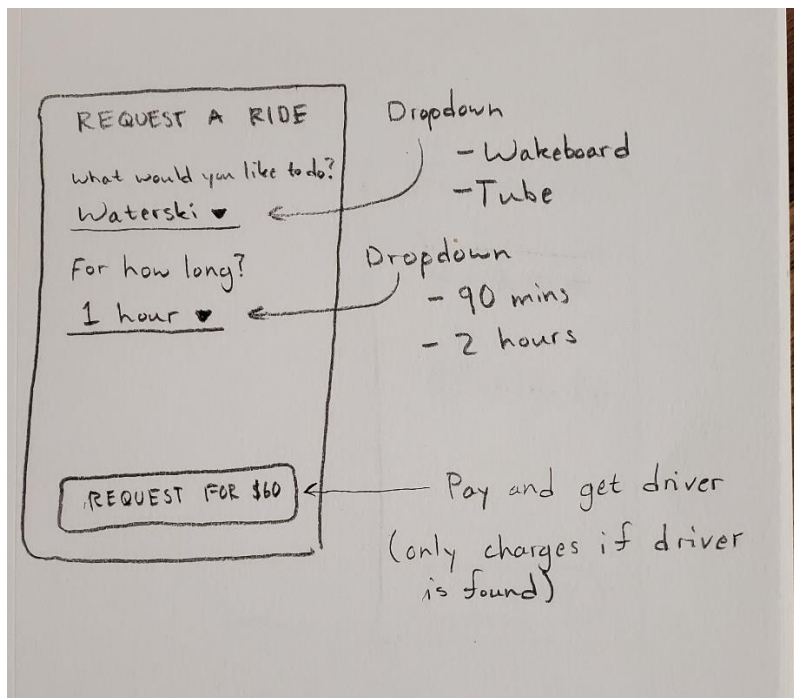 REQUEST A RIDE
what would you like to do?
Waterski
For how long?
1 hour
REQUEST FOR $60
Dropdown
- Wakeboard
- Tube
Dropdown
- 90 mins
- 2 hours
Pay and get driver
(only charges if driver
is found)